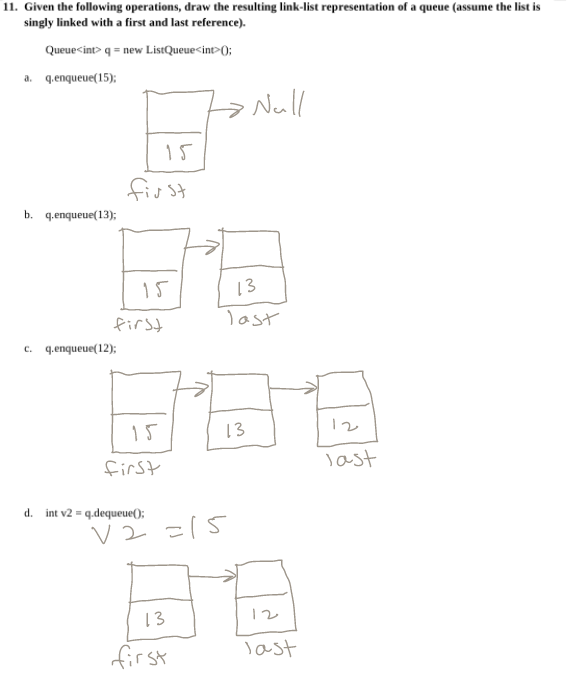 11. Given the following operations, draw the resulting link-list representation of a queue (assume the list is
singly linked with a first and last reference).
Queue<int> q = new ListQueue<int>();
a. q.enqueue(15);
Null
15
first
b. q.enqueue(13);
15 13
first last
c. q.enqueue(12);
15 13 12
first last
d. int v2 = q.dequeue();
V2 = 15
13 12
first last